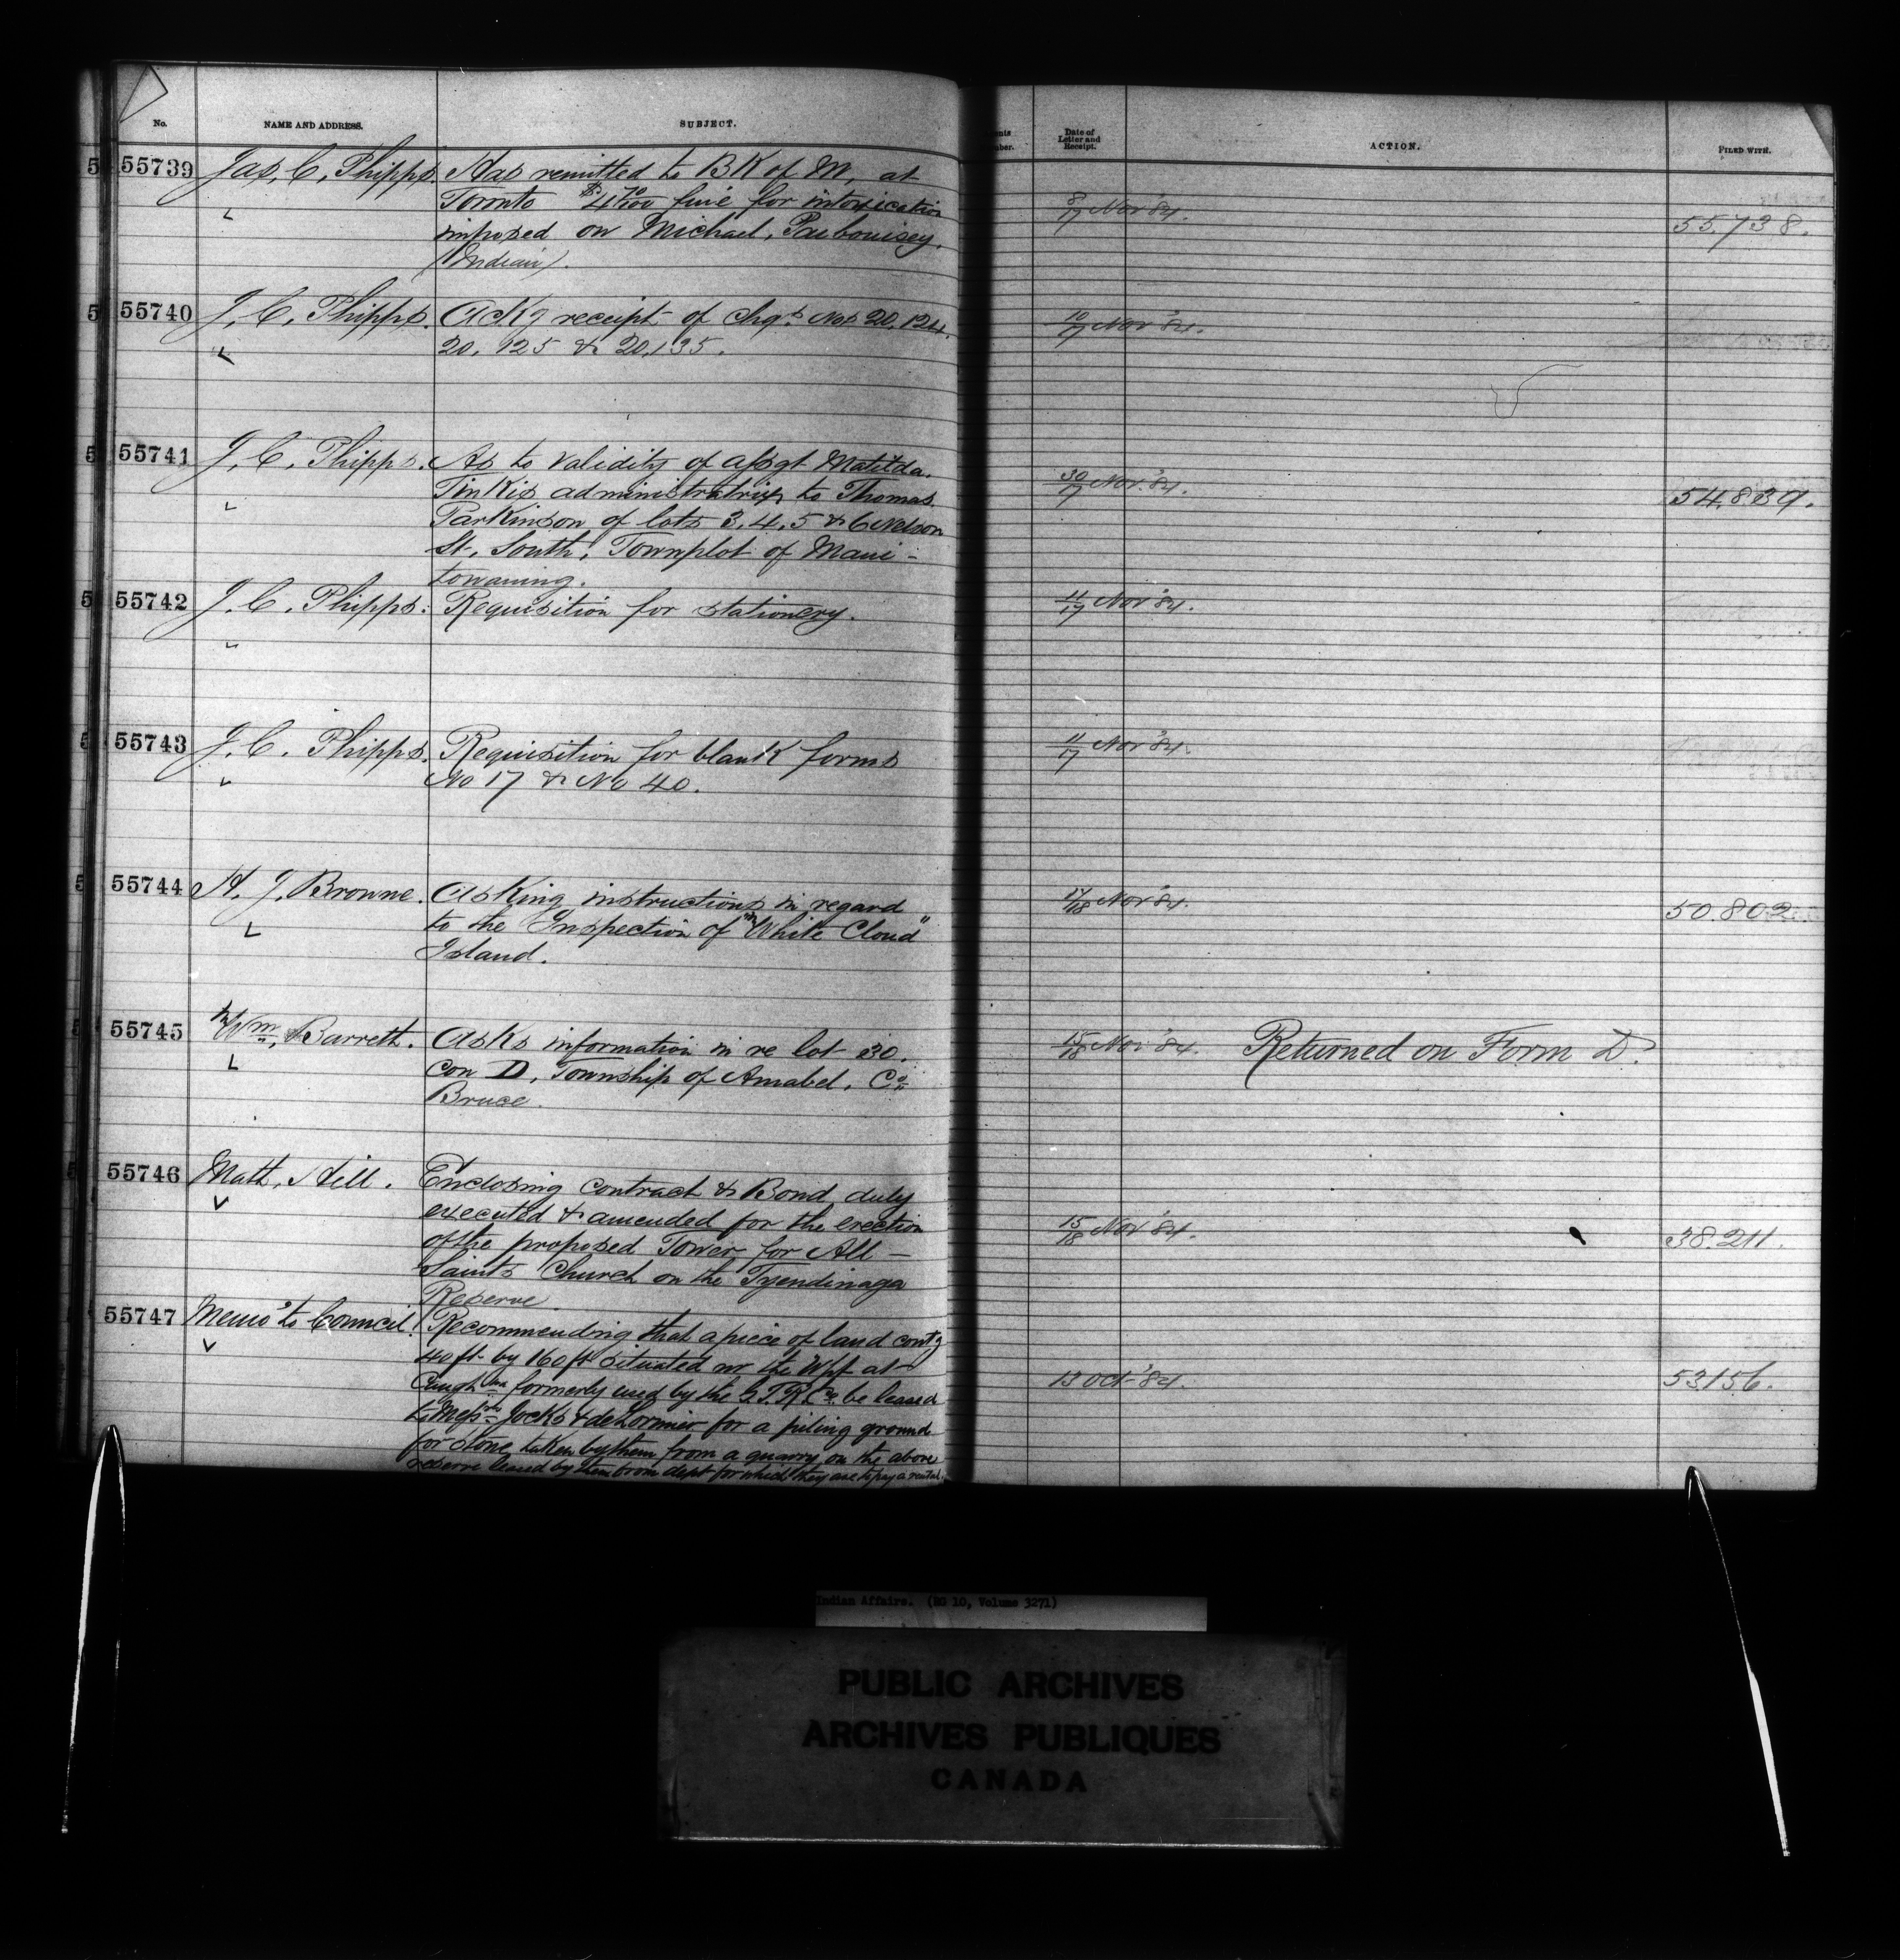 No. NAME AND ADDRESS. SUBJECT. Date of Letter and Receipt. ACTION. FILED WITH.
55739 Jas, C, Phipps. Has remitted to BK of M, at
Toronto $4 70/100 fine for intoxication 8/17 Nov '84.
imposed on Michael, 55.738.
(Indian).
55740 J. C. Phipps. Ackg receipt of chqs Nos 20.124, 10/17 Nov '84.
20.125 & 20.135.
55741 J. C. Phipps. As to validity of assgt Matilda.
Tinkis administratrix to Thomas 30/17 Nov. '84. 54.839.
Parkinson of lots 3.4.5 & 6 Nelson
St. South, Townplot of Mani-
towaning.
55742 J. C. Phipps. Requisition for stationery. 11/17 Nov '84.
55743 J. C. Phipps. Requisition for blank forms 11/17 Nov '84.
No 17 & No 40.
55744 H. J. Browne. Asking instructions in regard 17/18 Nov '84. 50.802
to the Inspection of "White Cloud"
Island.
55745 Wm, Barrett. Asks information in re lot 30. 15/18 Nov '84. Returned on Form D.
Con D, Township of Amabel. Co
Bruce.
55746 Matt, Hill. Enclosing contract & Bond duly
executed & amended for the erection 15/18 Nov '84. 38.211.
of the proposed Tower for All-
Saints Church on the Tyendinaga
Reserve
55747 Memo to Council. Recommending that a piece of land contg
40 ft by 160 ft situated nr the Whf at 13 Oct '84. 53156.
Caughna formerly used by the G.T.R Co. be leased
to Messrs Jocks & deLormier for a piling ground
for stone, taken by them from a quarry on the above
reserve leased by them from dept for which they are to pay a rental.
Indian Affairs. (RG 10, Volume 3271)
PUBLIC ARCHIVES
ARCHIVES PUBLIQUES
CANADA